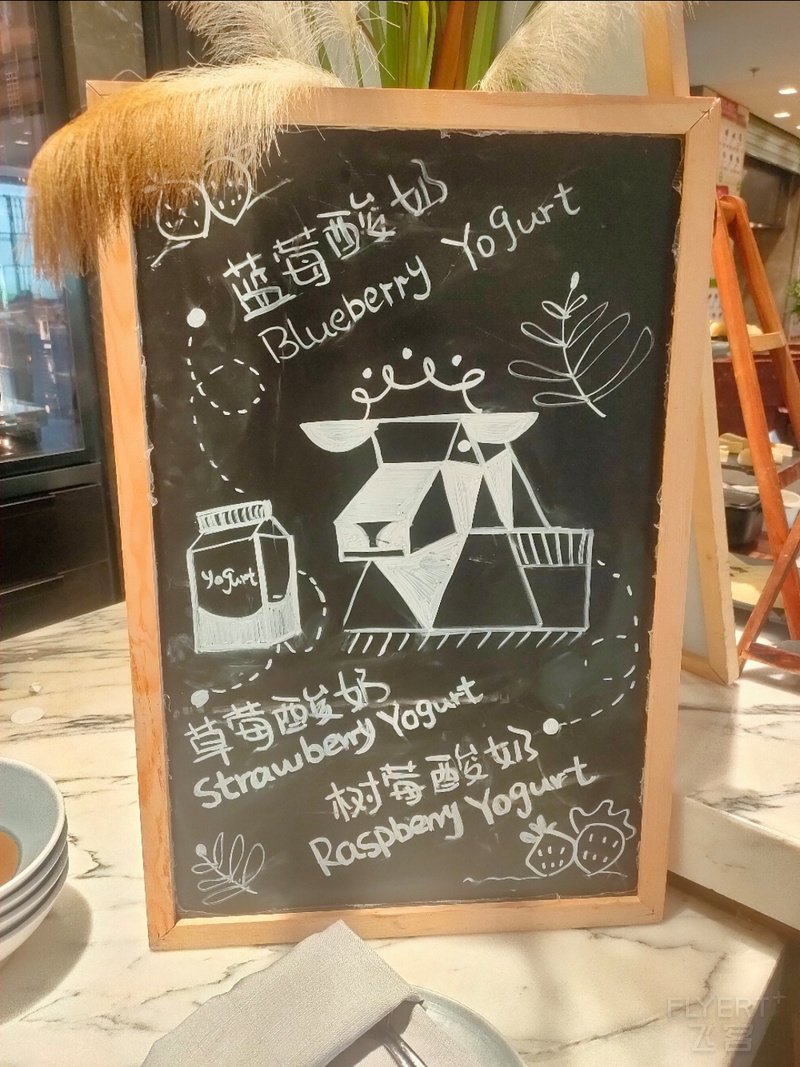 蓝莓酸奶
Blueberry Yogurt
Yogurt
草莓酸奶
Strawberry Yogurt
树莓酸奶
Raspberry Yogurt
FLYERT+
飞客